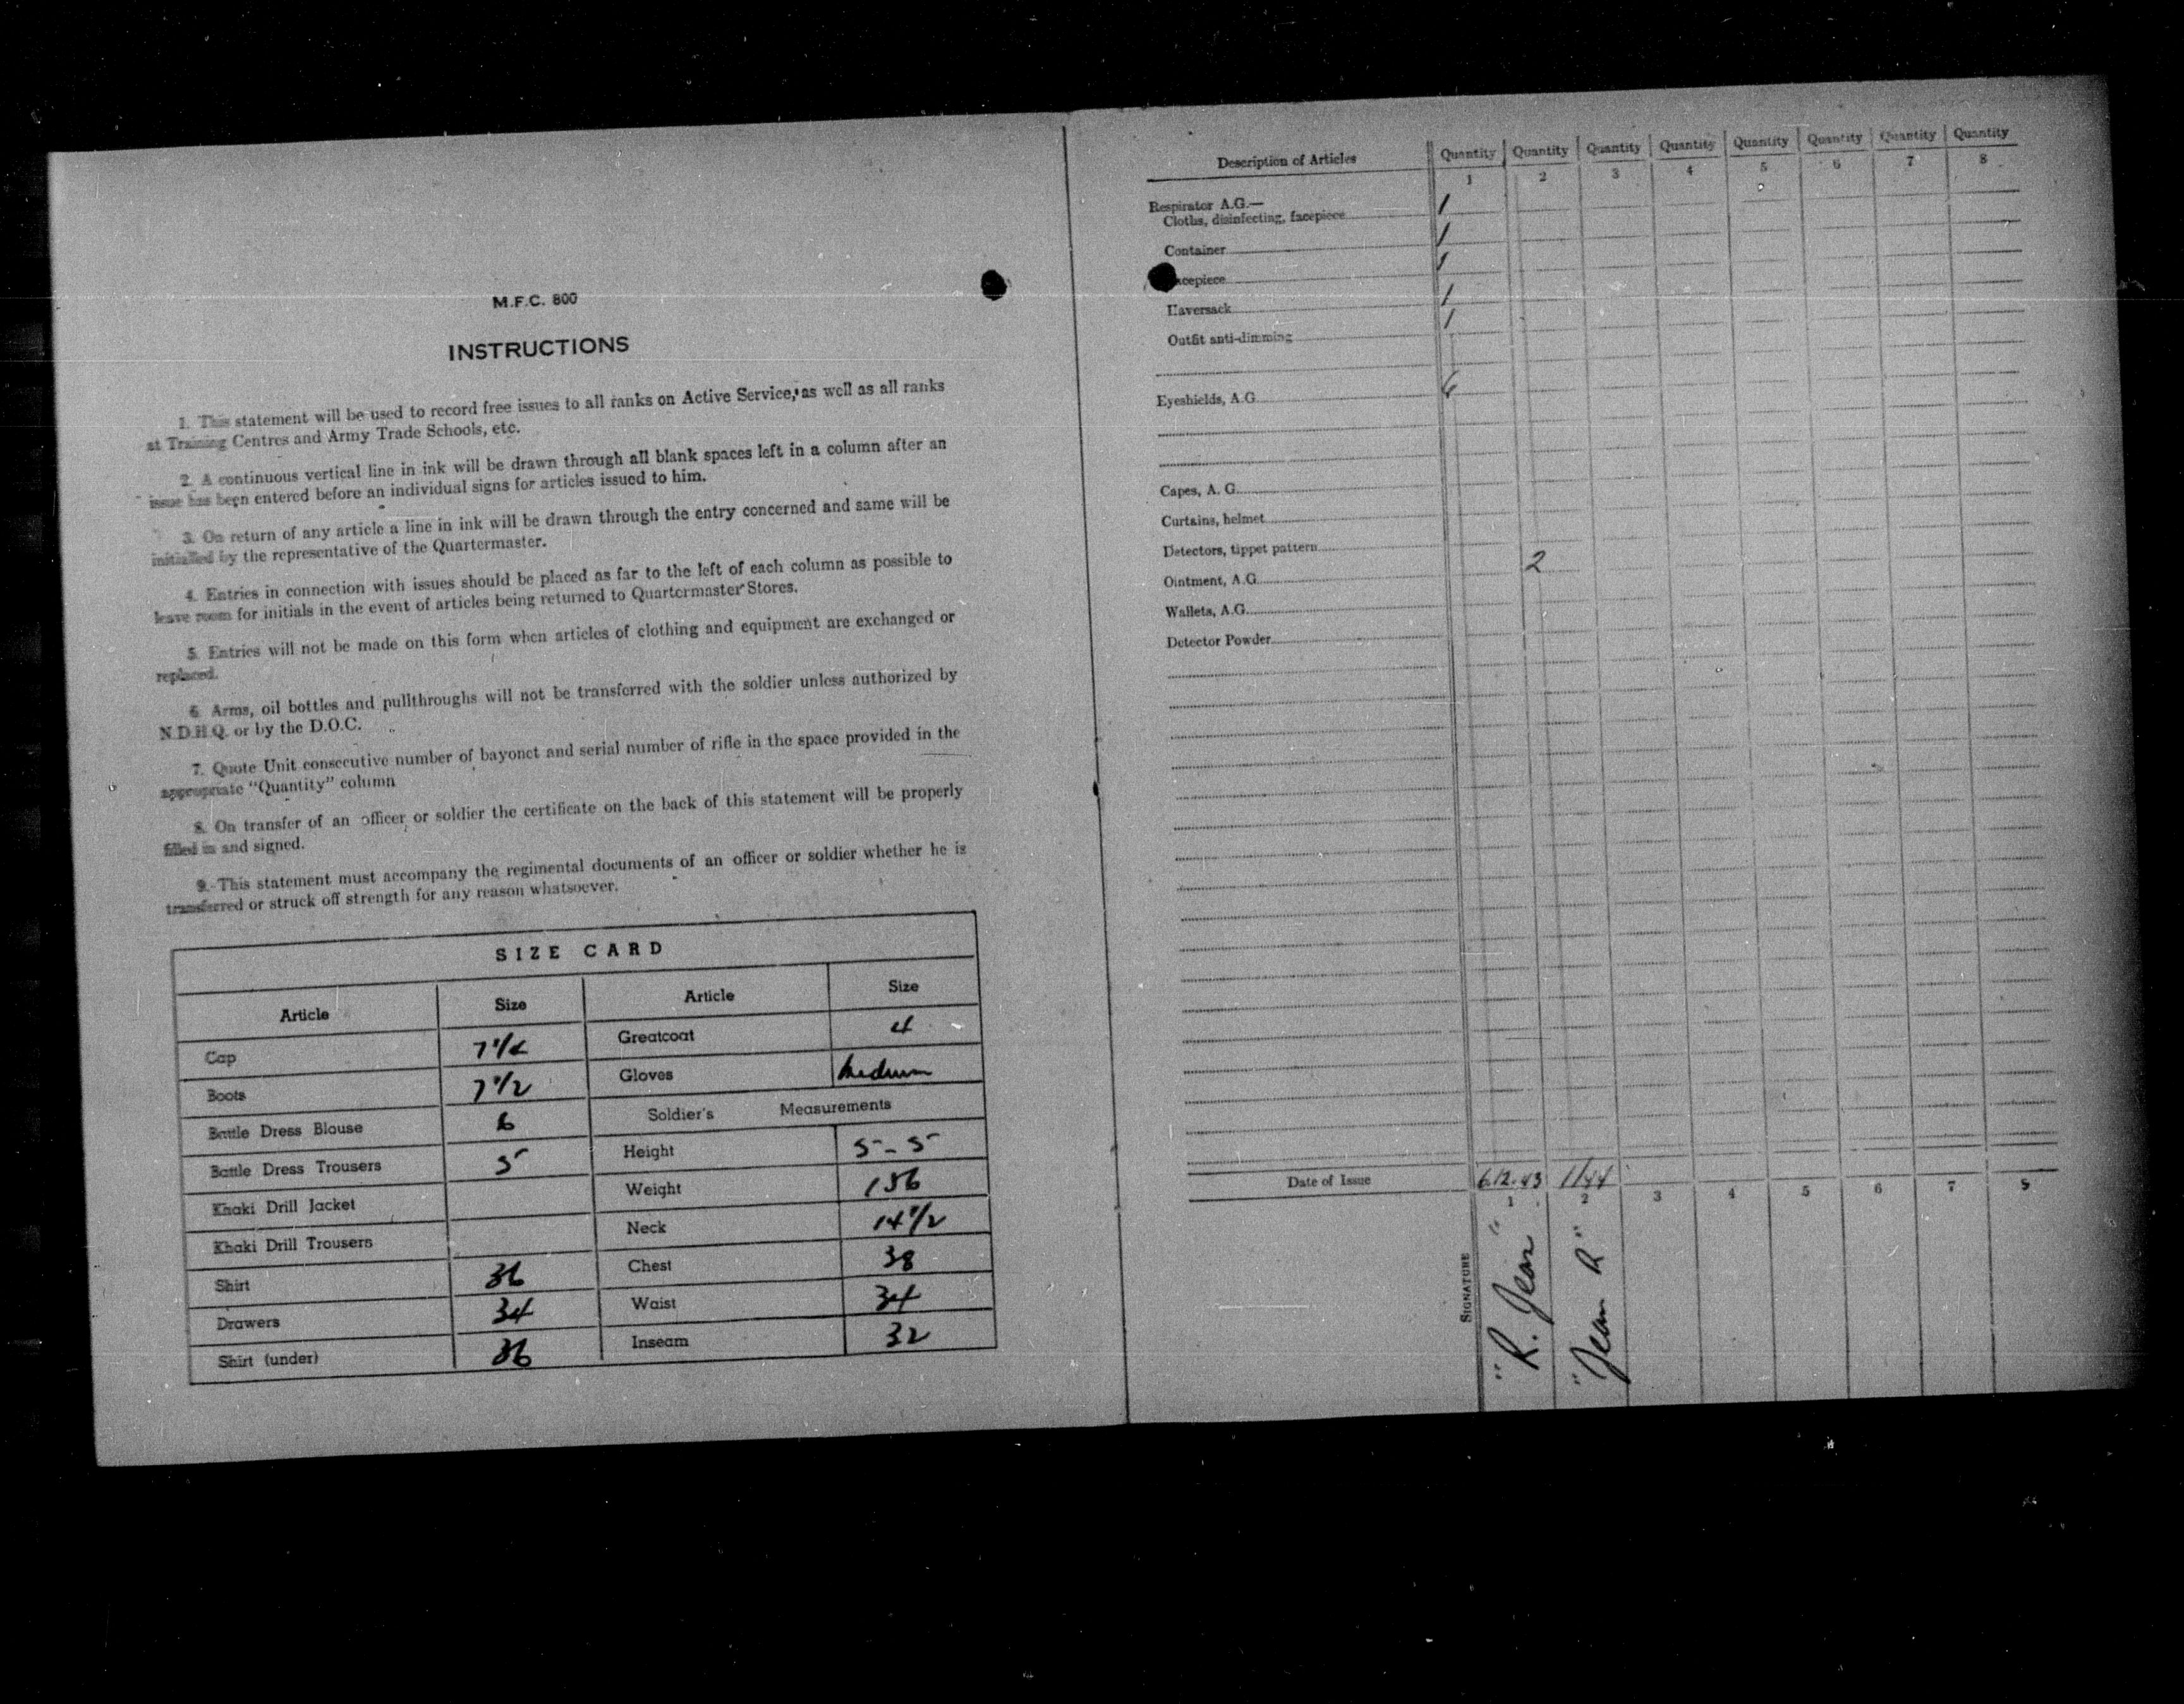 M.F.C. 800
INSTRUCTIONS
1. This statement will be used to record free issues to all ranks on Active Service, as well as all ranks
at Training Centres and Army Trade Schools, etc.
2. A continuous vertical line in ink will be drawn through all blank spaces left in a column after an
issue has been entered before an individual signs for articles issued to him.
3. On return of any article a line in ink will be drawn through the entry concerned and same will be
initialled by the representative of the Quartermaster.
4. Entries in connection with issues should be placed as far to the left of each column as possible to
leave room for initials in the event of articles being returned to Quartermaster Stores.
5. Entries will not be made on this form when articles of clothing and equipment are exchanged or
replaced.
6. Arms, oil bottles and pullthroughs will not be transferred with the soldier unless authorized by
N.D.H.Q. or by the D.O.C.
7. Quote Unit consecutive number of bayonet and serial number of rifle in the space provided in the
appropriate "Quantity" column
8. On transfer of an officer or soldier the certificate on the back of this statement will be properly
filled in and signed.
9. This statement must accompany the regimental documents of an officer or soldier whether he is
transferred or struck off strength for any reason whatsoever.
SIZE CARD
Article Size Article Size
Cap 7 1/4 Greatcoat 4
Boots 7 1/2 Gloves Medium
Battle Dress Blouse 6 Soldier's Measurements
Battle Dress Trousers 5 Height 5-5
Khaki Drill Jacket Weight 156
Khaki Drill Trousers Neck 14 1/2
Shirt 36 Chest 38
Drawers 34 Waist 34
Shirt (under) 36 Inseam 32
Description of Articles Quantity Quantity Quantity Quantity Quantity Quantity Quantity Quantity
1 2 3 4 5 6 7 8
Respirator A.G.—
Cloths, disinfecting, facepiece 1
Container 1
acepiece 1
Haversack 1
Outfit anti-dimming 1
Eyeshields, A.G.
Capes, A. G.
Curtains, helmet
Detectors, tippet pattern
Ointment, A.G. 2
Wallets, A.G.
Detector Powder
Date of Issue 6.12.43 1/44
1 2 3 4 5 6 7 8
SIGNATURE "R. Jean" "Jean R"